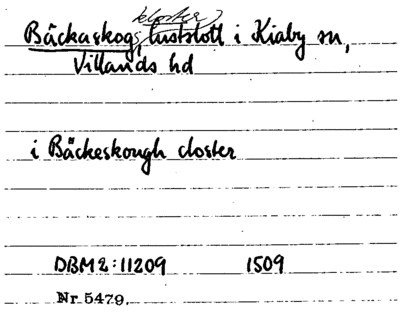 kloster
Bäckaskogs lustslott i Kiaby sn,
Villands hd
i Bäckeskough closter
DBM 2:11209 1509
Nr 5479.